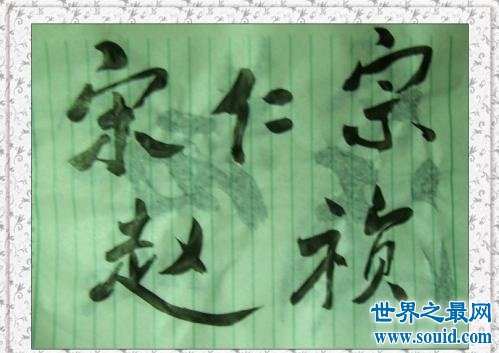 宋仁宗
赵祯
世界之最网
www.souid.com